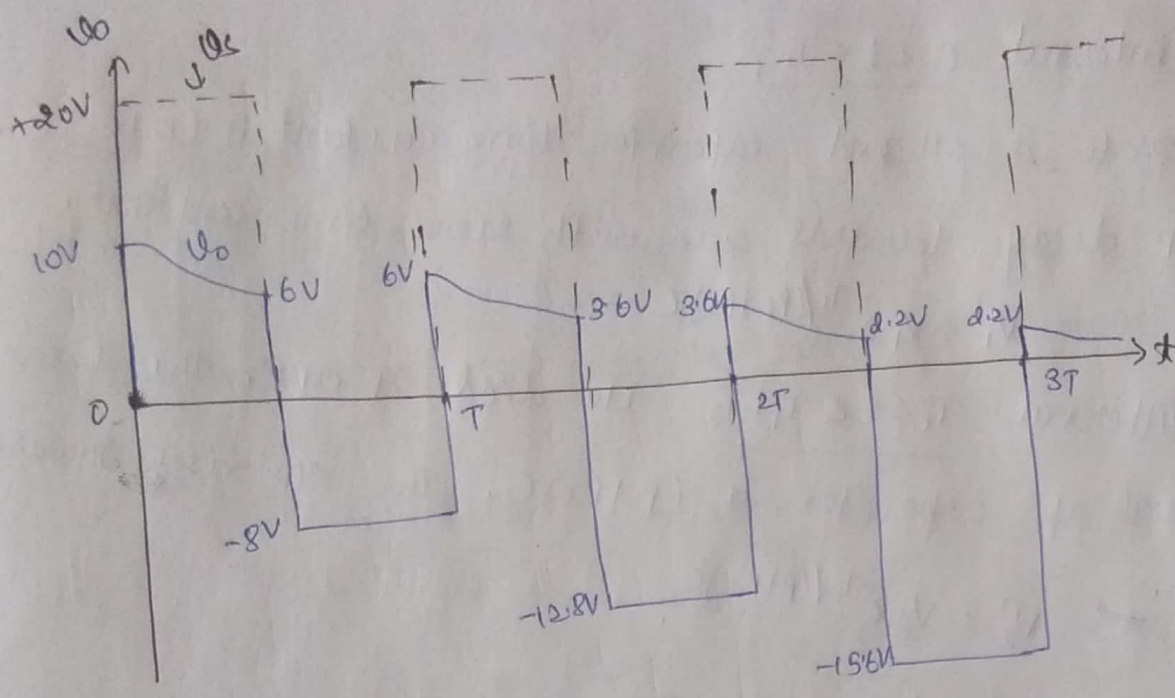 v₀
vs
+20V
10V
v₀
6V
6V
3.6V
3.6V
2.2V
2.2V
t
0
T
2T
3T
-8V
-12.8V
-15.6V